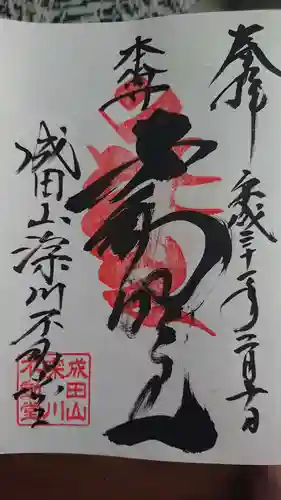 奉拝
平成三十一年二月十一日
本尊
不動明王
成田山深川不動堂
成田山
深川
不動堂